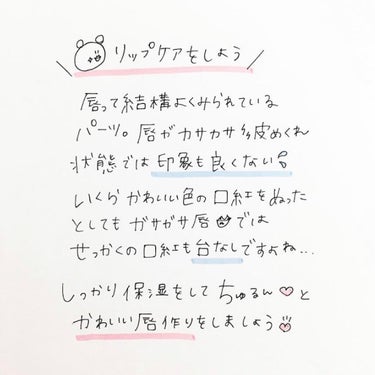 リップケアをしよう
唇って結構よくみられている
パーツ。唇がカサカサ皮めくれ
状態では印象も良くない
いくらかわいい色の口紅をぬった
としてもガサガサ唇では
せっかくの口紅も台なしですよね...
しっかり保湿をしてちゅるん♡と
かわいい唇作りをしましょう